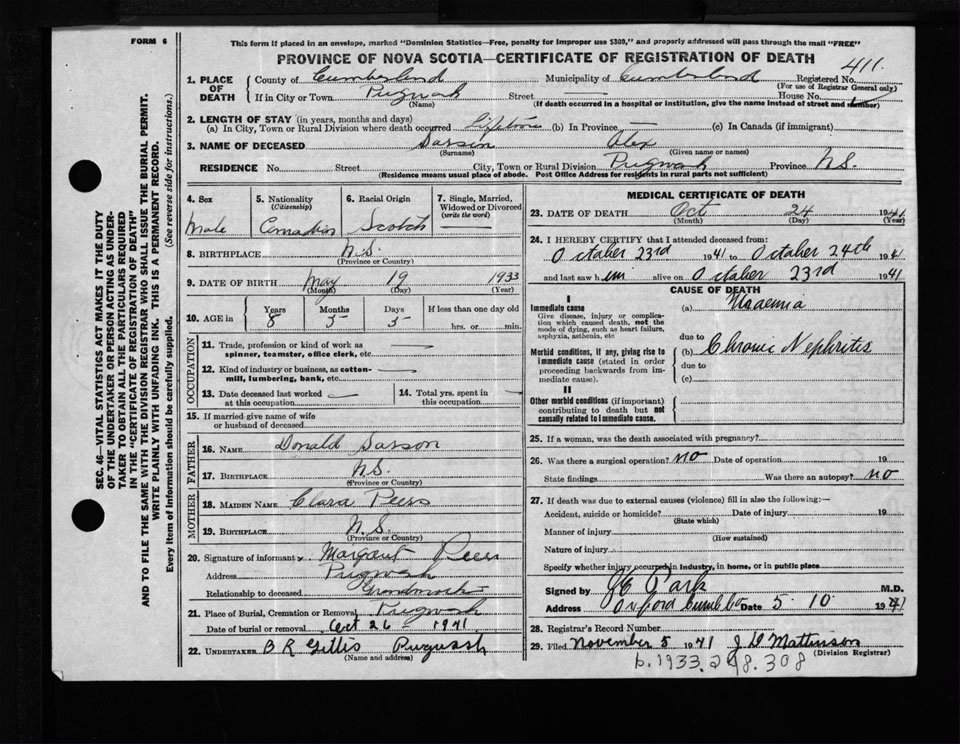 FORM 6
This form if placed in an envelope, marked "Dominion Statistics—Free, penalty for improper use $300," and properly addressed will pass through the mail "FREE"
PROVINCE OF NOVA SCOTIA—CERTIFICATE OF REGISTRATION OF DEATH
411.
1. PLACE OF DEATH { County of Cumberland Municipality of Cumberland Registered No.
(For use of Registrar General only)
If in City or Town Pugwash Street House No.
(Name) (If death occurred in a hospital or institution, give the name instead of street and number)
2. LENGTH OF STAY (in years, months and days)
(a) In City, Town or Rural Division where death occurred lifetime (b) In Province — (c) In Canada (if immigrant)
3. NAME OF DECEASED Alex
(Surname) (Given name or names)
RESIDENCE No. Street City, Town or Rural Division Pugwash Province N.S.
(Residence means usual place of abode. Post Office Address for residents in rural parts not sufficient)
SEC. 46—VITAL STATISTICS ACT MAKES IT THE DUTY
OF THE UNDERTAKER OR PERSON ACTING AS UNDER-
TAKER TO OBTAIN ALL THE PARTICULARS REQUIRED
IN THE "CERTIFICATE OF REGISTRATION OF DEATH"
AND TO FILE THE SAME WITH THE DIVISION REGISTRAR WHO SHALL ISSUE THE BURIAL PERMIT.
WRITE PLAINLY WITH UNFADING INK. THIS IS A PERMANENT RECORD.
Every item of information should be carefully supplied. (See reverse side for instructions.)
4. Sex 5. Nationality (Citizenship) 6. Racial Origin 7. Single, Married, Widowed or Divorced (write the word)
Male Canadian Scotch —
8. BIRTHPLACE N.S.
(Province or Country)
9. DATE OF BIRTH May 19 1933
(Month) (Day) (Year)
10. AGE in Years Months Days If less than one day old
8 5 5 hrs. or min.
OCCUPATION
11. Trade, profession or kind of work as
spinner, teamster, office clerk, etc.
12. Kind of industry or business, as cotton-
mill, lumbering, bank, etc.
13. Date deceased last worked at this occupation 14. Total yrs. spent in this occupation
15. If married give name of wife
or husband of deceased
FATHER
16. NAME Donald Sarson
17. BIRTHPLACE N.S.
(Province or Country)
MOTHER
18. MAIDEN NAME Clara Peers
19. BIRTHPLACE N.S.
(Province or Country)
20. Signature of informant x Margaret Peers
Address Pugwash
Relationship to deceased Grandmother
21. Place of Burial, Cremation or Removal Pugwash
Date of burial or removal Oct 26 1941
22. UNDERTAKER B R Gillis Pugwash
(Name and address)
MEDICAL CERTIFICATE OF DEATH
23. DATE OF DEATH Oct 24 1941
(Month) (Day) (Year)
24. I HEREBY CERTIFY that I attended deceased from:
October 23rd 1941 to October 24th 1941
and last saw him alive on October 23rd 1941
CAUSE OF DEATH
I
Immediate cause (a) Uraemia
Give disease, injury or complica-
tion which caused death, not the
mode of dying, such as heart failure,
asphyxia, asthenia, etc
due to
Morbid conditions, if any, giving rise to (b) Chronic Nephritis
immediate cause (stated in order due to
proceeding backwards from im- (c)
mediate cause).
II
Other morbid conditions (if important)
contributing to death but not
causally related to immediate cause.
25. If a woman, was the death associated with pregnancy?
26. Was there a surgical operation? no Date of operation 19
State findings Was there an autopsy? no
27. If death was due to external causes (violence) fill in also the following:—
Accident, suicide or homicide? Date of injury 19
(State which)
Manner of injury
(How sustained)
Nature of injury
Specify whether injury occurred in industry, in home, or in public place
Signed by M.D.
Address Oxford Date 5 · 10 · 1941
28. Registrar's Record Number
29. Filed November 5 1941 J D Mattinson
(Division Registrar)
b.1933.248.308